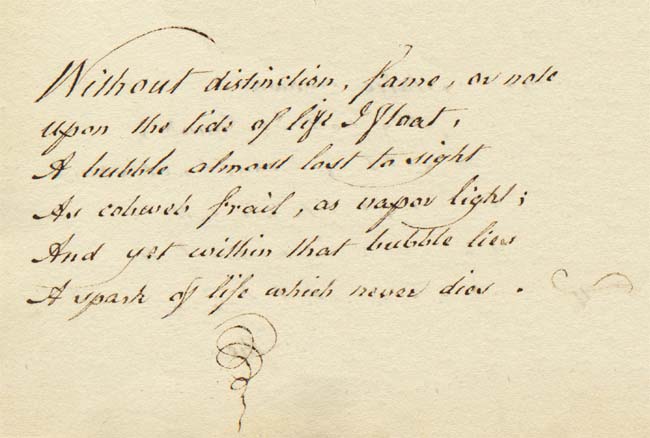 Without distinction, fame, or note
upon the tide of life I float,
A bubble almost lost to sight
As cobweb frail, as vapor light;
And yet within that bubble lies
A spark of life which never dies.